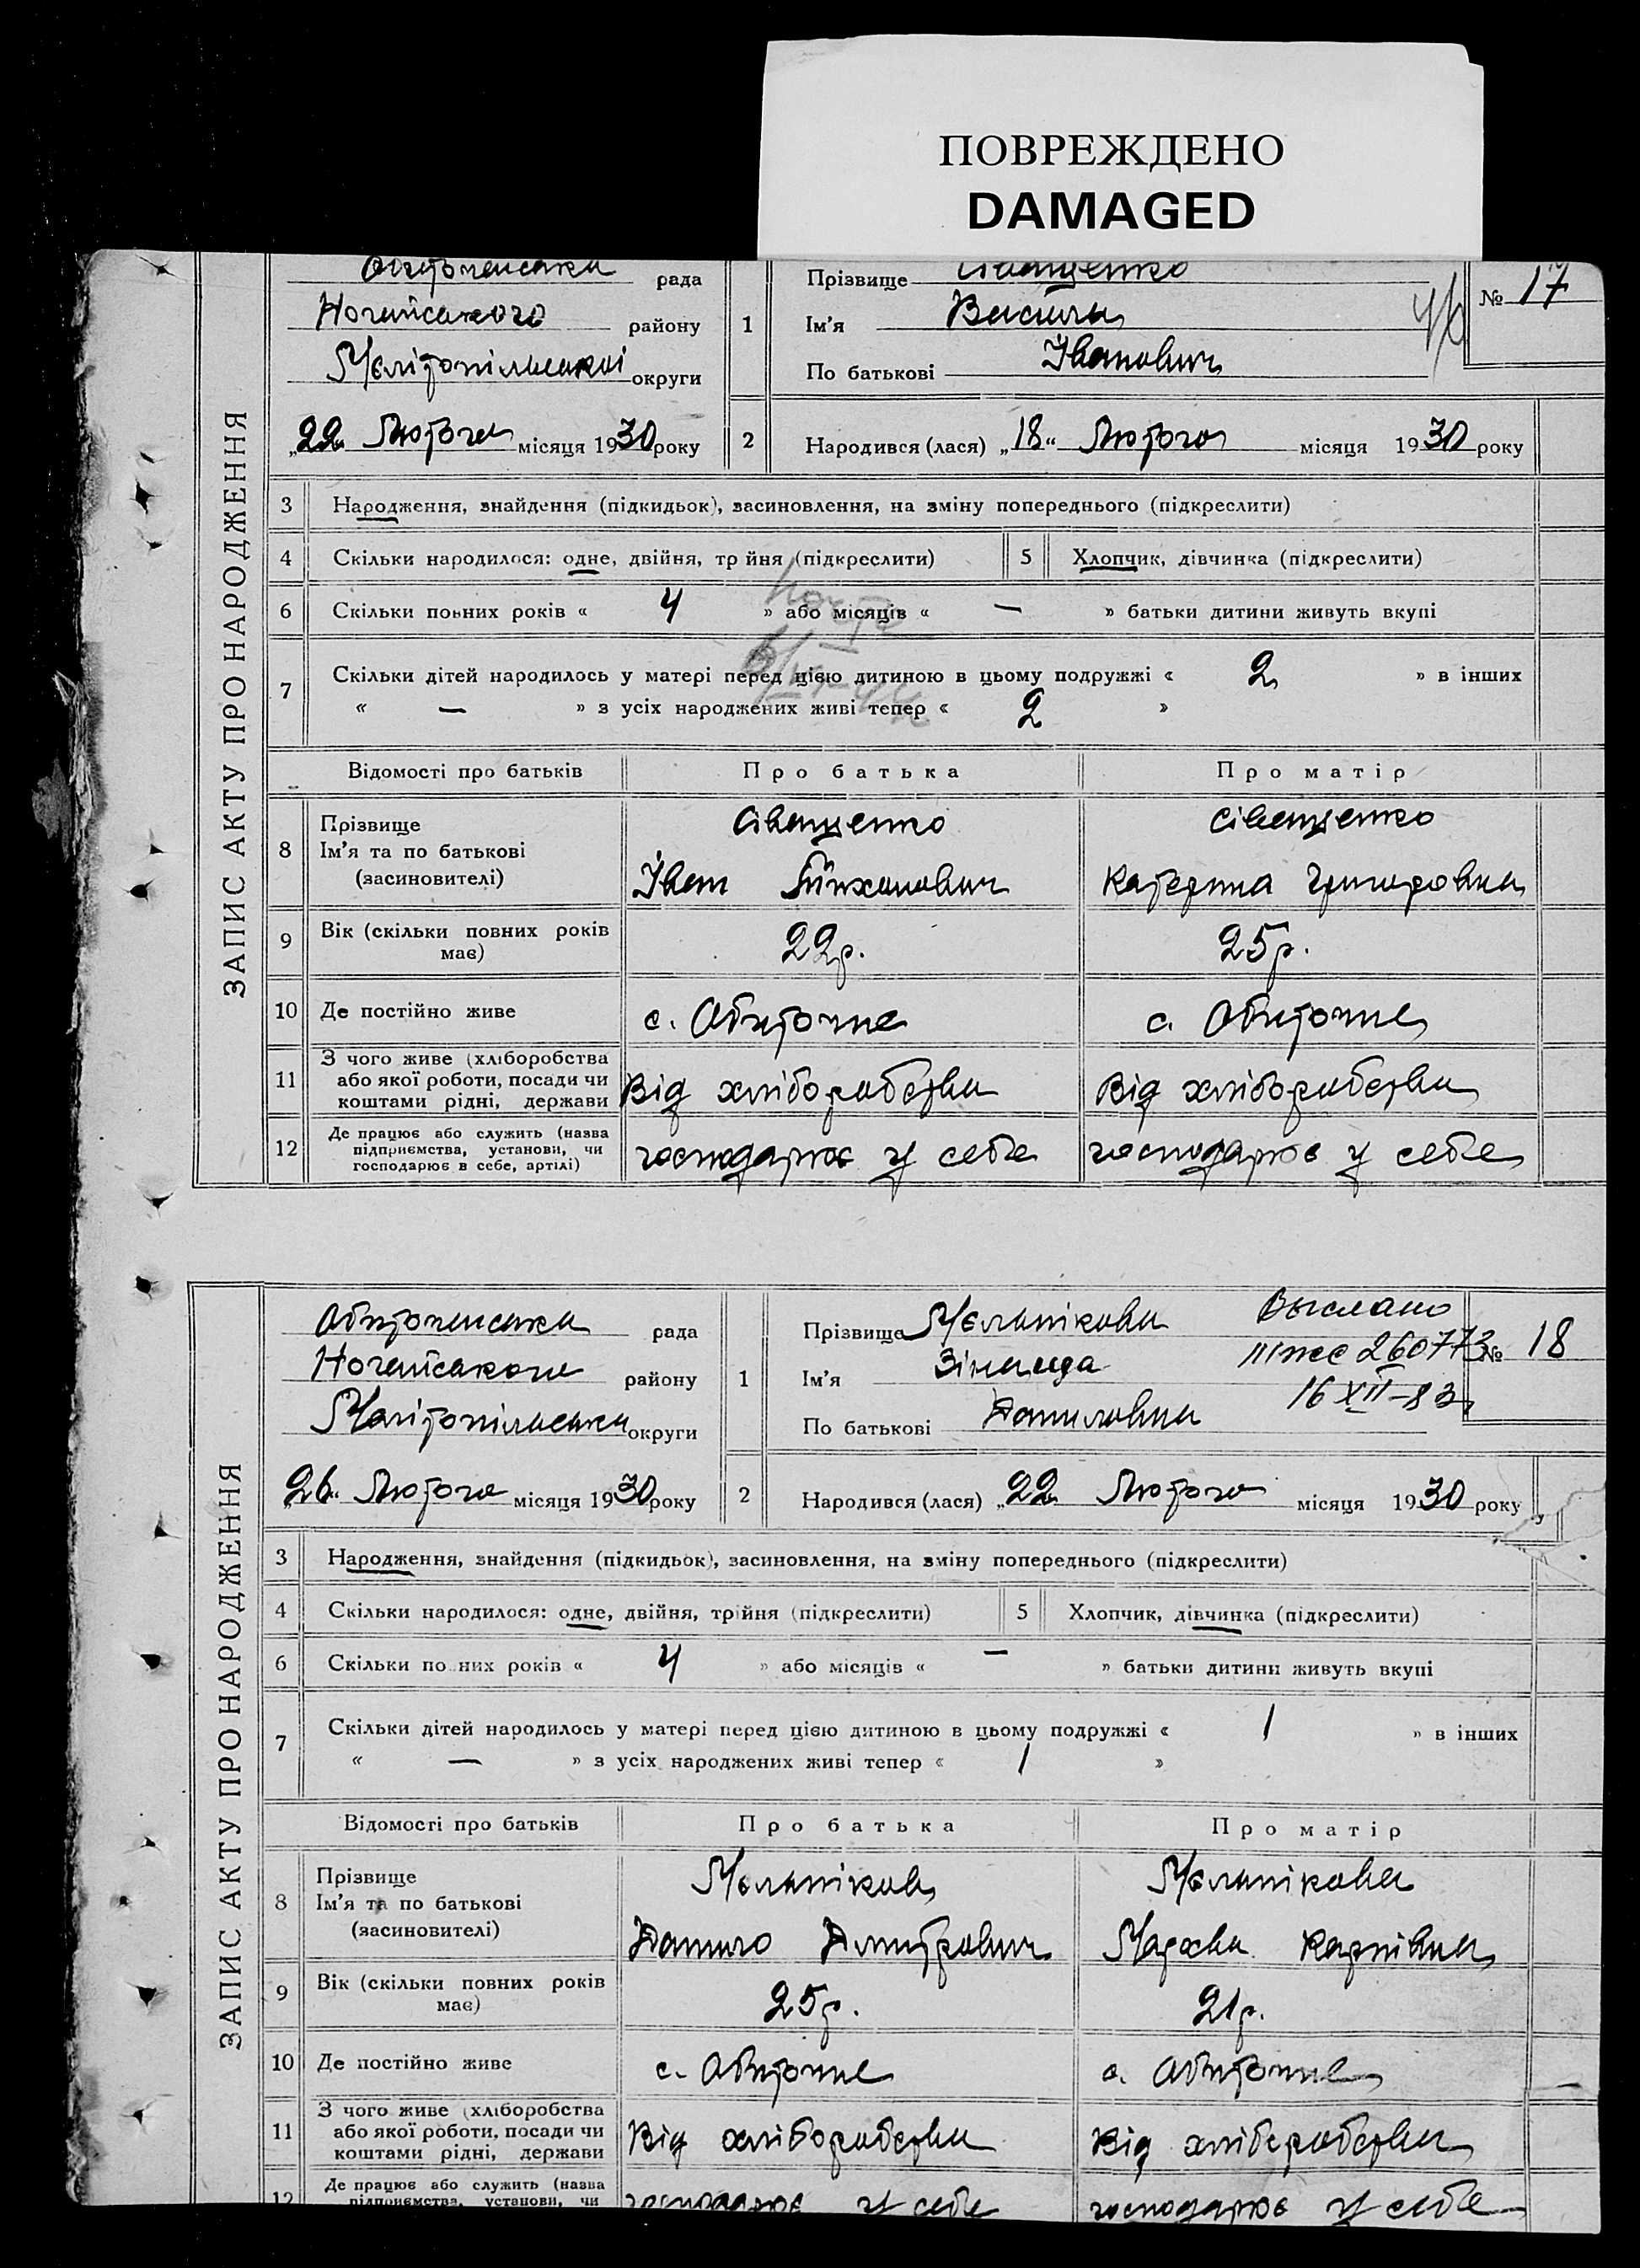 ПОВРЕЖДЕНО
DAMAGED
ЗАПИС АКТУ ПРО НАРОДЖЕННЯ
Обиточенська рада
Ногайського району
Мелітопільської округи
„22“ Лютого місяця 1930 року
1
Прізвище Сіващенко
Ім'я Василь
По батькові Іванович
№ 17
2 Народився (лася) „18“ Лютого місяця 1930 року
3 Народження, знайдення (підкидьок), засиновлення, на зміну попереднього (підкреслити)
4 Скільки народилося: одне, двійня, тр йня (підкреслити) 5 Хлопчик, дівчинка (підкреслити)
6 Скільки повних років « 4 » або місяців « — » батьки дитини живуть вкупі
7 Скільки дітей народилось у матері перед цією дитиною в цьому подружжі « 2 » в інших
« — » з усіх народжених живі тепер « 2 »
Відомості про батьків Про батька Про матір
8 Прізвище Сіващенко Сіващенко
Ім'я та по батькові
(засиновителі) Іван Катерина Григоровна
9 Вік (скільки повних років має) 22р. 25р.
10 Де постійно живе с. Обиточне с. Обиточне
11 З чого живе (хліборобства
або якої роботи, посади чи
коштами рідні, держави Від хліборобства Від хліборобства
12 Де працює або служить (назва
підприємства, установи, чи
господарює в себе, артілі) господарює у себе господарює у себе
ЗАПИС АКТУ ПРО НАРОДЖЕННЯ
Обиточенська рада
Ногайського району
Мелітопільська округи
„26“ Лютого місяця 1930 року
1
Прізвище Мєланікова
Ім'я Зінаида
По батькові Даниловна
Выслано
260773
16 XII-83
№ 18
2 Народився (лася) „22 Лютого місяця 1930 року
3 Народження, знайдення (підкидьок), засиновлення, на зміну попереднього (підкреслити)
4 Скільки народилося: одне, двійня, трійня (підкреслити) 5 Хлопчик, дівчинка (підкреслити)
6 Скільки по них років « 4 » або місяців « — » батьки дитини живуть вкупі
7 Скільки дітей народилось у матері перед цією дитиною в цьому подружжі « 1 » в інших
« — » з усіх народжених живі тепер « 1 »
Відомості про батьків Про батька Про матір
8 Прізвище Мєланіков Мєланікова
Ім'я та по батькові
(засиновителі) Данило Дмитрович Марфа Карпівна
9 Вік (скільки повних років має) 25р. 21р.
10 Де постійно живе с. Обиточне с. Обиточне
11 З чого живе (хліборобства
або якої роботи, посади чи
коштами рідні, держави Від хліборобства Від хліборобства
12 Де працює або служить (назва
підприємства, установи, чи господарює у себе господарює у себе